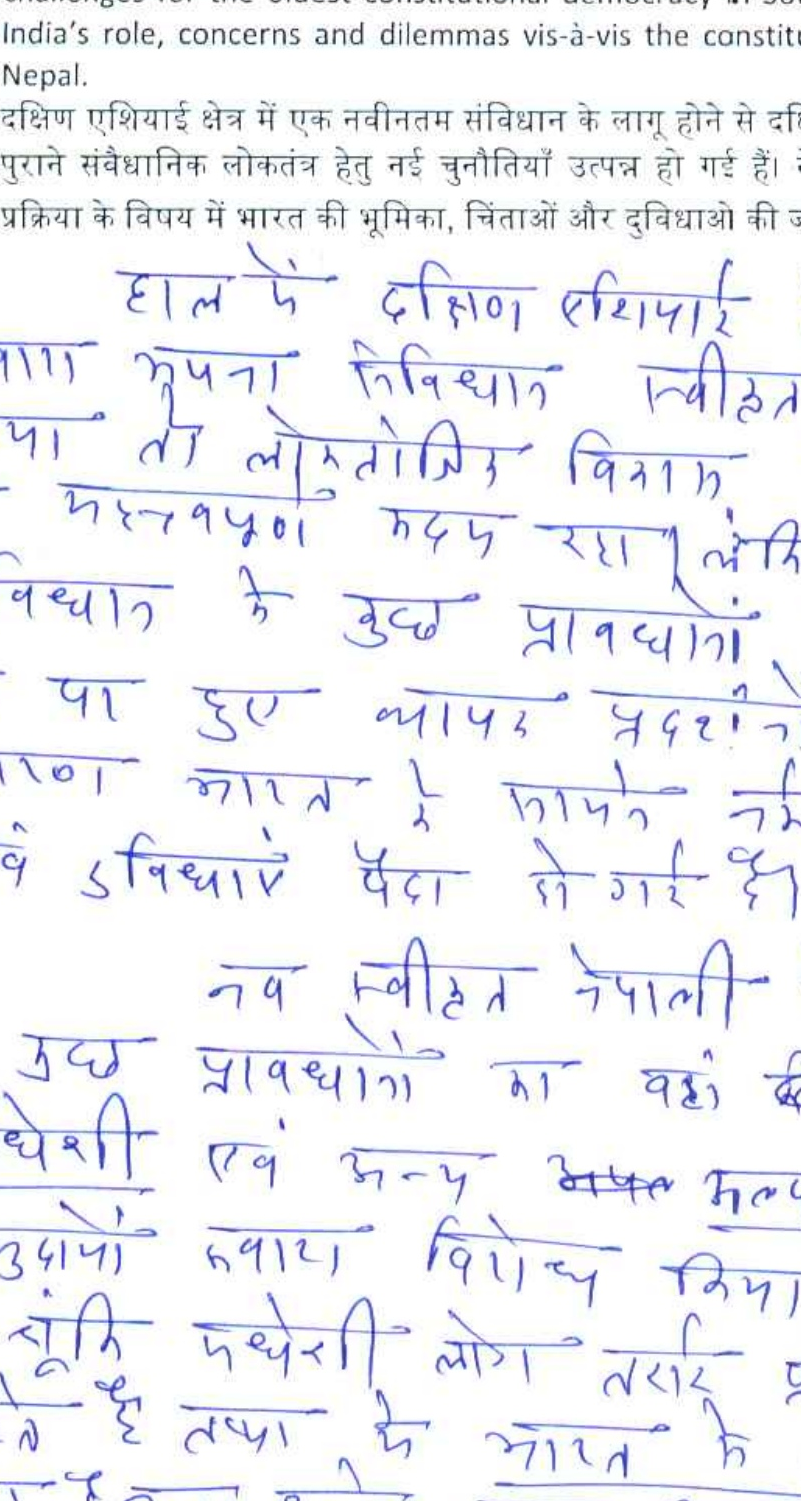 challenges for the oldest constitutional democracy in Sou
India's role, concerns and dilemmas vis-à-vis the constitu
Nepal.
दक्षिण एशियाई क्षेत्र में एक नवीनतम संविधान के लागू होने से दक्षि
पुराने संवैधानिक लोकतंत्र हेतु नई चुनौतियाँ उत्पन्न हो गई हैं।
प्रक्रिया के विषय में भारत की भूमिका, चिंताओं और दुविधाओ की ज
हाल में दक्षिण एशियाई
अपना संविधान स्वीकृत
तो लोकतांत्रिक विकास
महत्वपूर्ण कदम रहा। लेकि
विधान के कुछ प्रावधानों
पर हुए व्यापक प्रदर्शनों
कारण भारत के सामने नई
एवं दुविधाएं पैदा हो गई है।
नव स्वीकृत नेपाली
कुछ प्रावधानों का वहां की
धेशी एवं अन्य अल्प
मुदायों द्वारा विरोध किया
चूंकि मधेशी लोग तराई प्र
है तथा वे भारत के